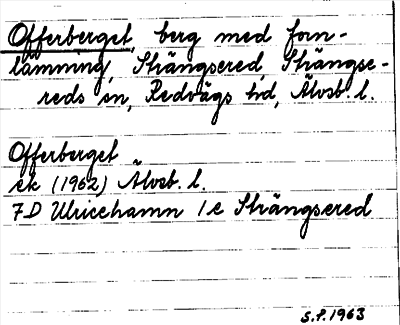 Offerberget, berg med forn-
lämning, Strängsered, Strängse-
reds sn, Redvägs hd, Älvsb. l.
Offerberget
ek (1962) Älvsb. l.
7D Ulricehamn 1e Strängsered
S.P. 1963